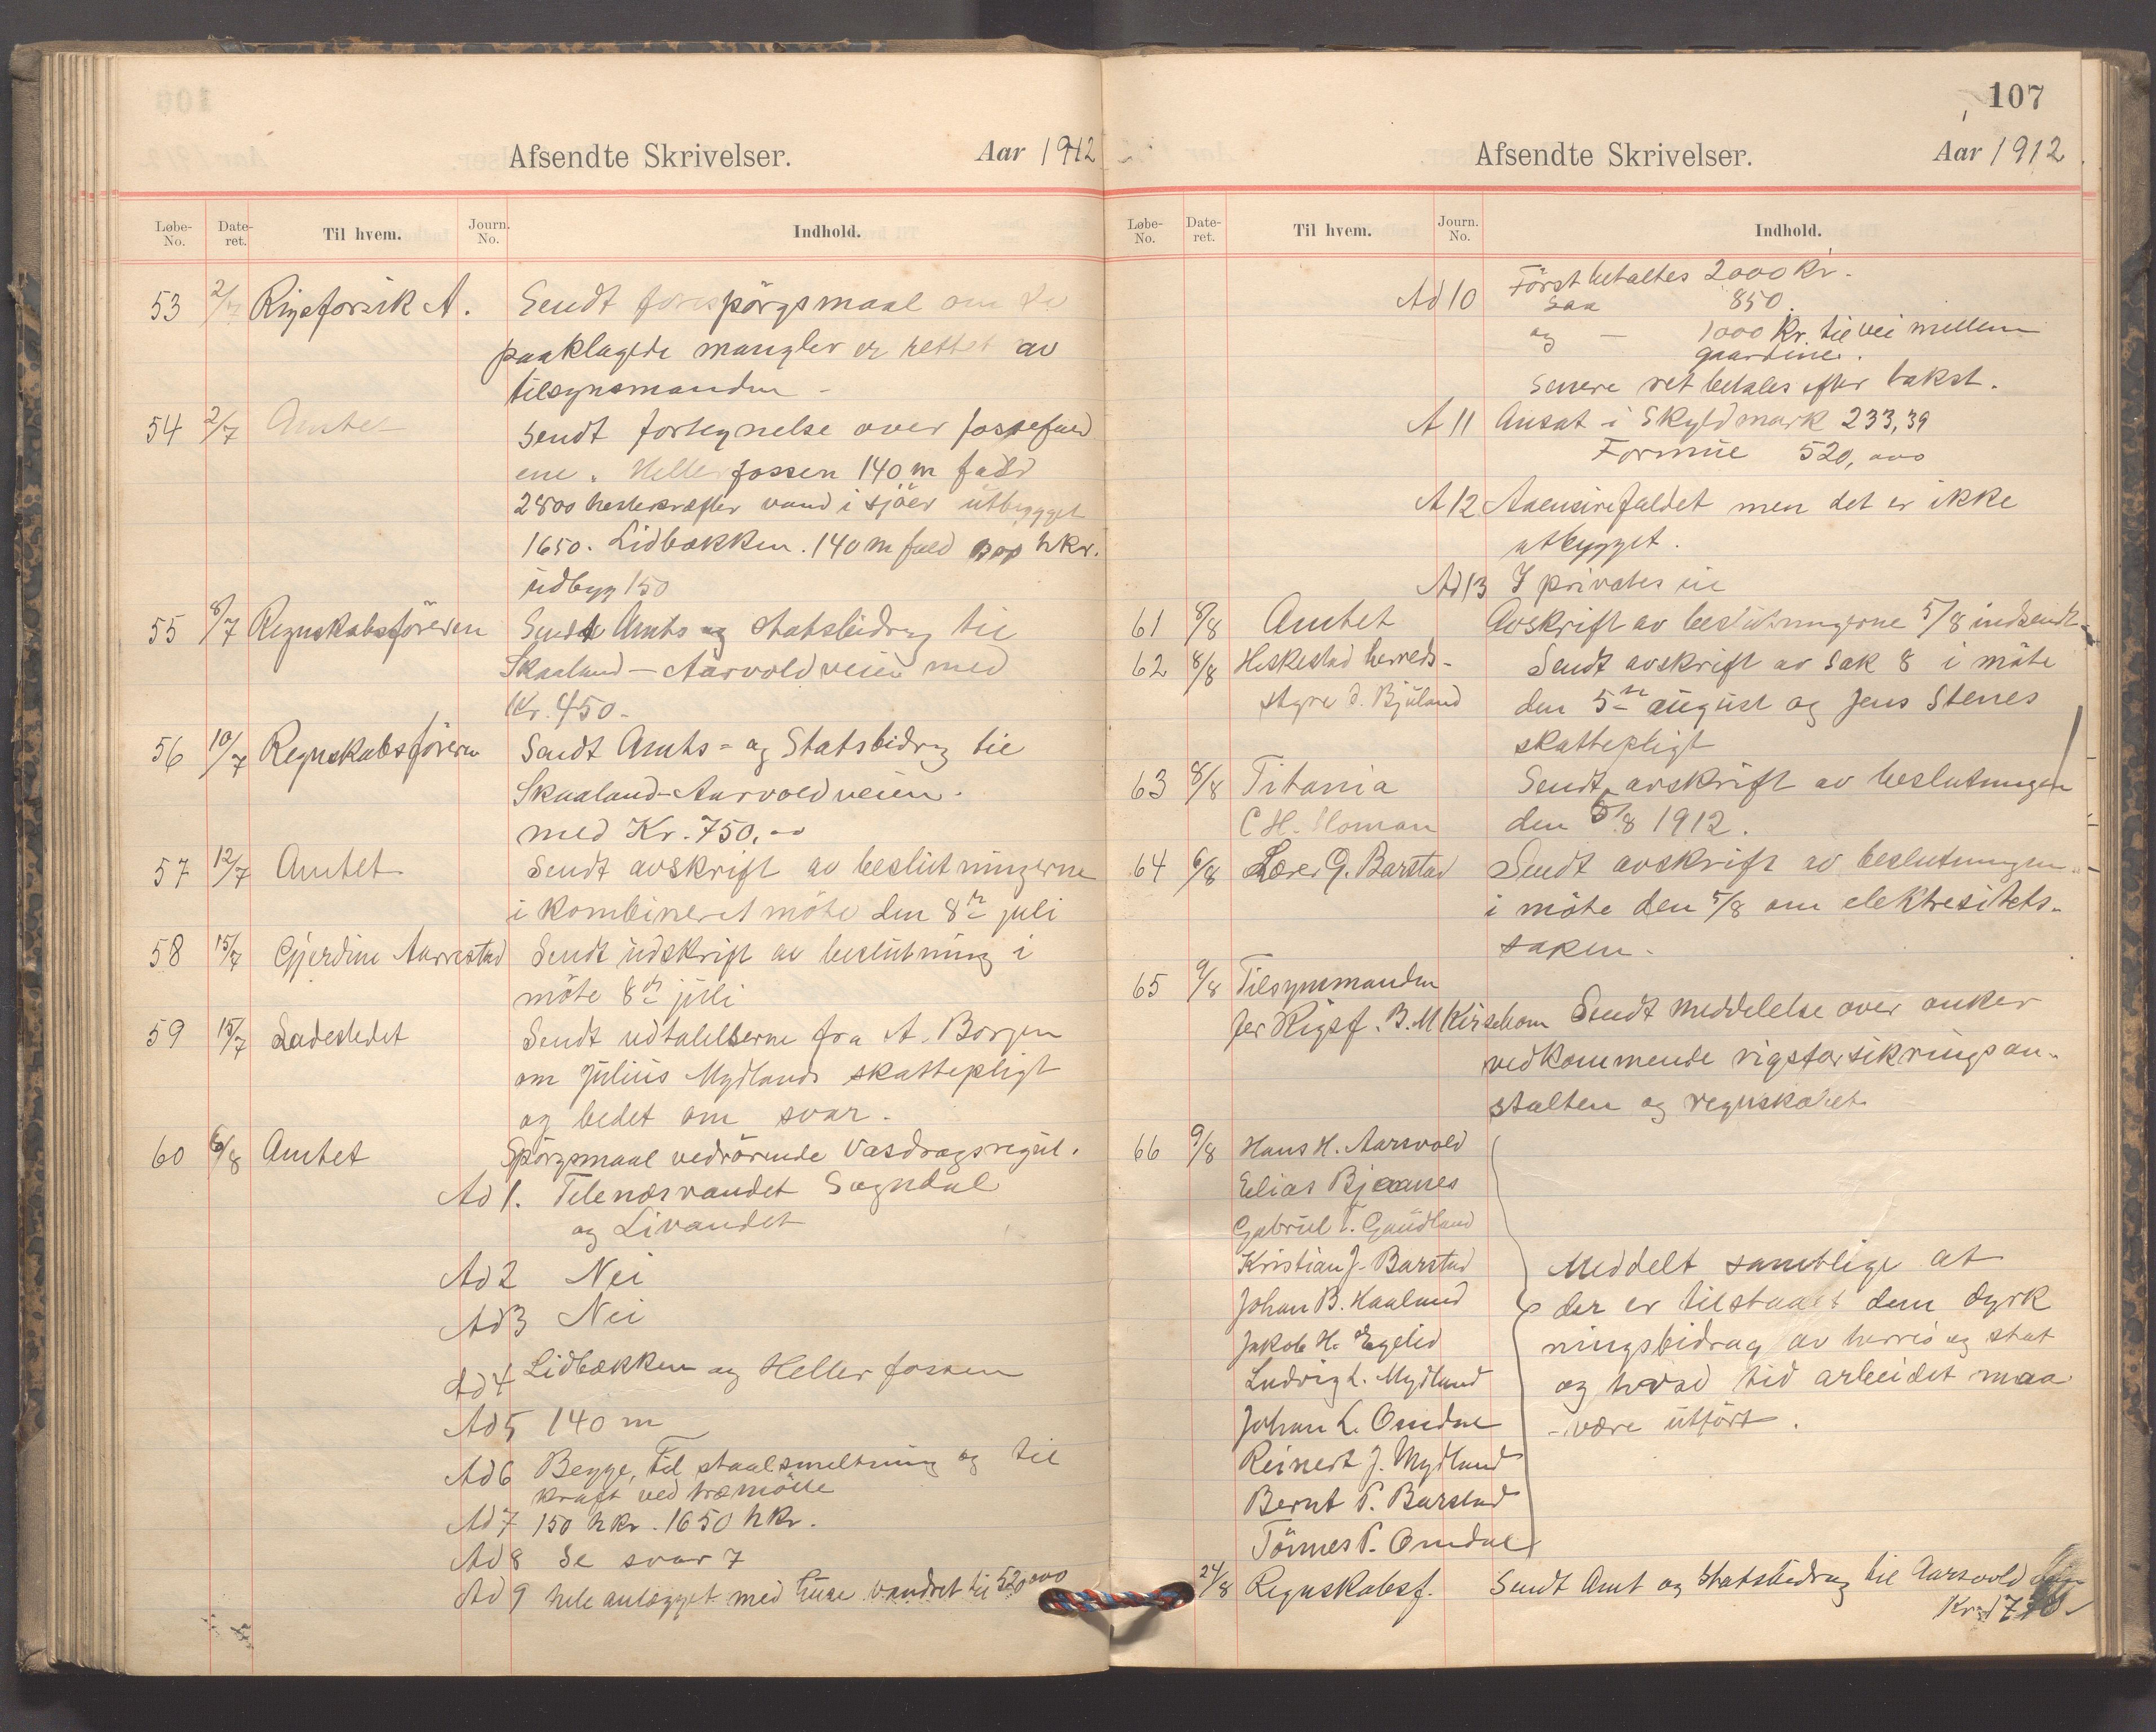 Afsendte Skrivelser. Aar 1912
Løbe-No. Date-ret. Til hvem. Journ. No. Indhold.
53 2/7 Rigsforsik A. Sendt forespörgsmaal om de
paaklagede mangler er rettet av
tilsynsmanden -
54 2/7 Amtet Sendt fortegnelse over fossefald
ene. Hellerfossen 140 m fald
2800 hestekræfter vand i sjöer utbygget
1650. Lidbækken. 140 m fald hkr.
udbyg 150
55 8/7 Regnskabsföreren Sendt Amts og statsbidrag til
Skaaland - Aarvold veien med
Kr. 450.-
56 10/7 Regnskabsföreren Sendt Amts- og Statsbidrag til
Skaaland-Aarvold veien.
med Kr. 750.-
57 12/7 Amtet Sendt avskrift av beslutningerne
i kombineret möte den 8de juli
58 15/7 Gjerdine Aarrestad Sendt udskrift av beslutning i
möte 8de juli
59 15/7 Ladestedet Sendt udtalelserne fra A. Borgen
om Julius Mydlands skattepligt
og bedet om svar.
60 6/8 Amtet Spörgsmaal vedrörende Vasdragsregul.
Ad 1. Telenæsvandet Sogndal
og Livandet
Ad 2 Nei
Ad 3 Nei
Ad 4 Lidbækken og Hellerfossen
Ad 5 140 m
Ad 6 Begge, til staalsmeltning og til
kraft ved træmölle
Ad 7 150 hkr. 1650 hkr.
Ad 8 Se svar 7
Ad 9 hele anlægget med huse vandret til 520000
107
Afsendte Skrivelser. Aar 1912
Løbe-No. Date-ret. Til hvem. Journ. No. Indhold.
Ad 10 Först betaltes 2000 Kr.
Saa 850.
og - 1000 Kr. til vei mellem
gaardene.
Senere ret betales efter takst.
A 11 Ansat i Skyldmark 233,39
Formue 520,000
A 12 Aaensirefaldet men det er ikke
utbygget.
Ad 13 I privates eie
61 8/8 Amtet Avskrift av beslutningerne 5/8 indsendt
62 8/8 Heskestad herreds- Sendt avskrift av Sak 8 i möte
styre d. Bjuland den 5te august og Jens Stenes
skattepligt
63 8/8 Titania Sendt avskrift av beslutningen
C H. Homan den 5/8 1912.
64 6/8 Lærer G. Barstad Sendt avskrift av beslutningen
i möte den 5/8 om elektresitets-
saken.
65 9/8 Tilsynsmanden
for Rigsf. B. M Kirsebom Sendt Meddelelse over anker
vedkommende rigsforsikringsan-
stalten og regnskabet
66 9/8 Hans H. Aarsvold
Elias Bjaanes
Gabriel T. Gaudland
Kristian J. Barstad Meddelt samtlige at
Johan B. Haaland der er tilstaaet dem dyrk
Jakob H. Egelid ningsbidrag av herred og stat
Ludvig L. Mydland og hvad tid arbeidet maa
Johan L. Omdal være utfört.
Reinert J. Mydland
Bernt P. Barstad
Tönnes P. Omdal
24/8 Regnskabsf. Sendt Amt og Statsbidrag til Aarsvold